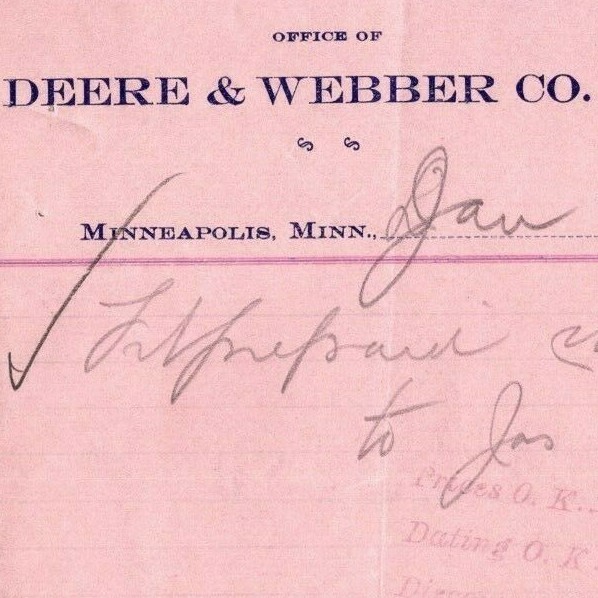 OFFICE OF
DEERE & WEBBER CO.
MINNEAPOLIS, MINN., Jan
Frt prepaid
to Jas
Prices O. K.
Dating O. K.